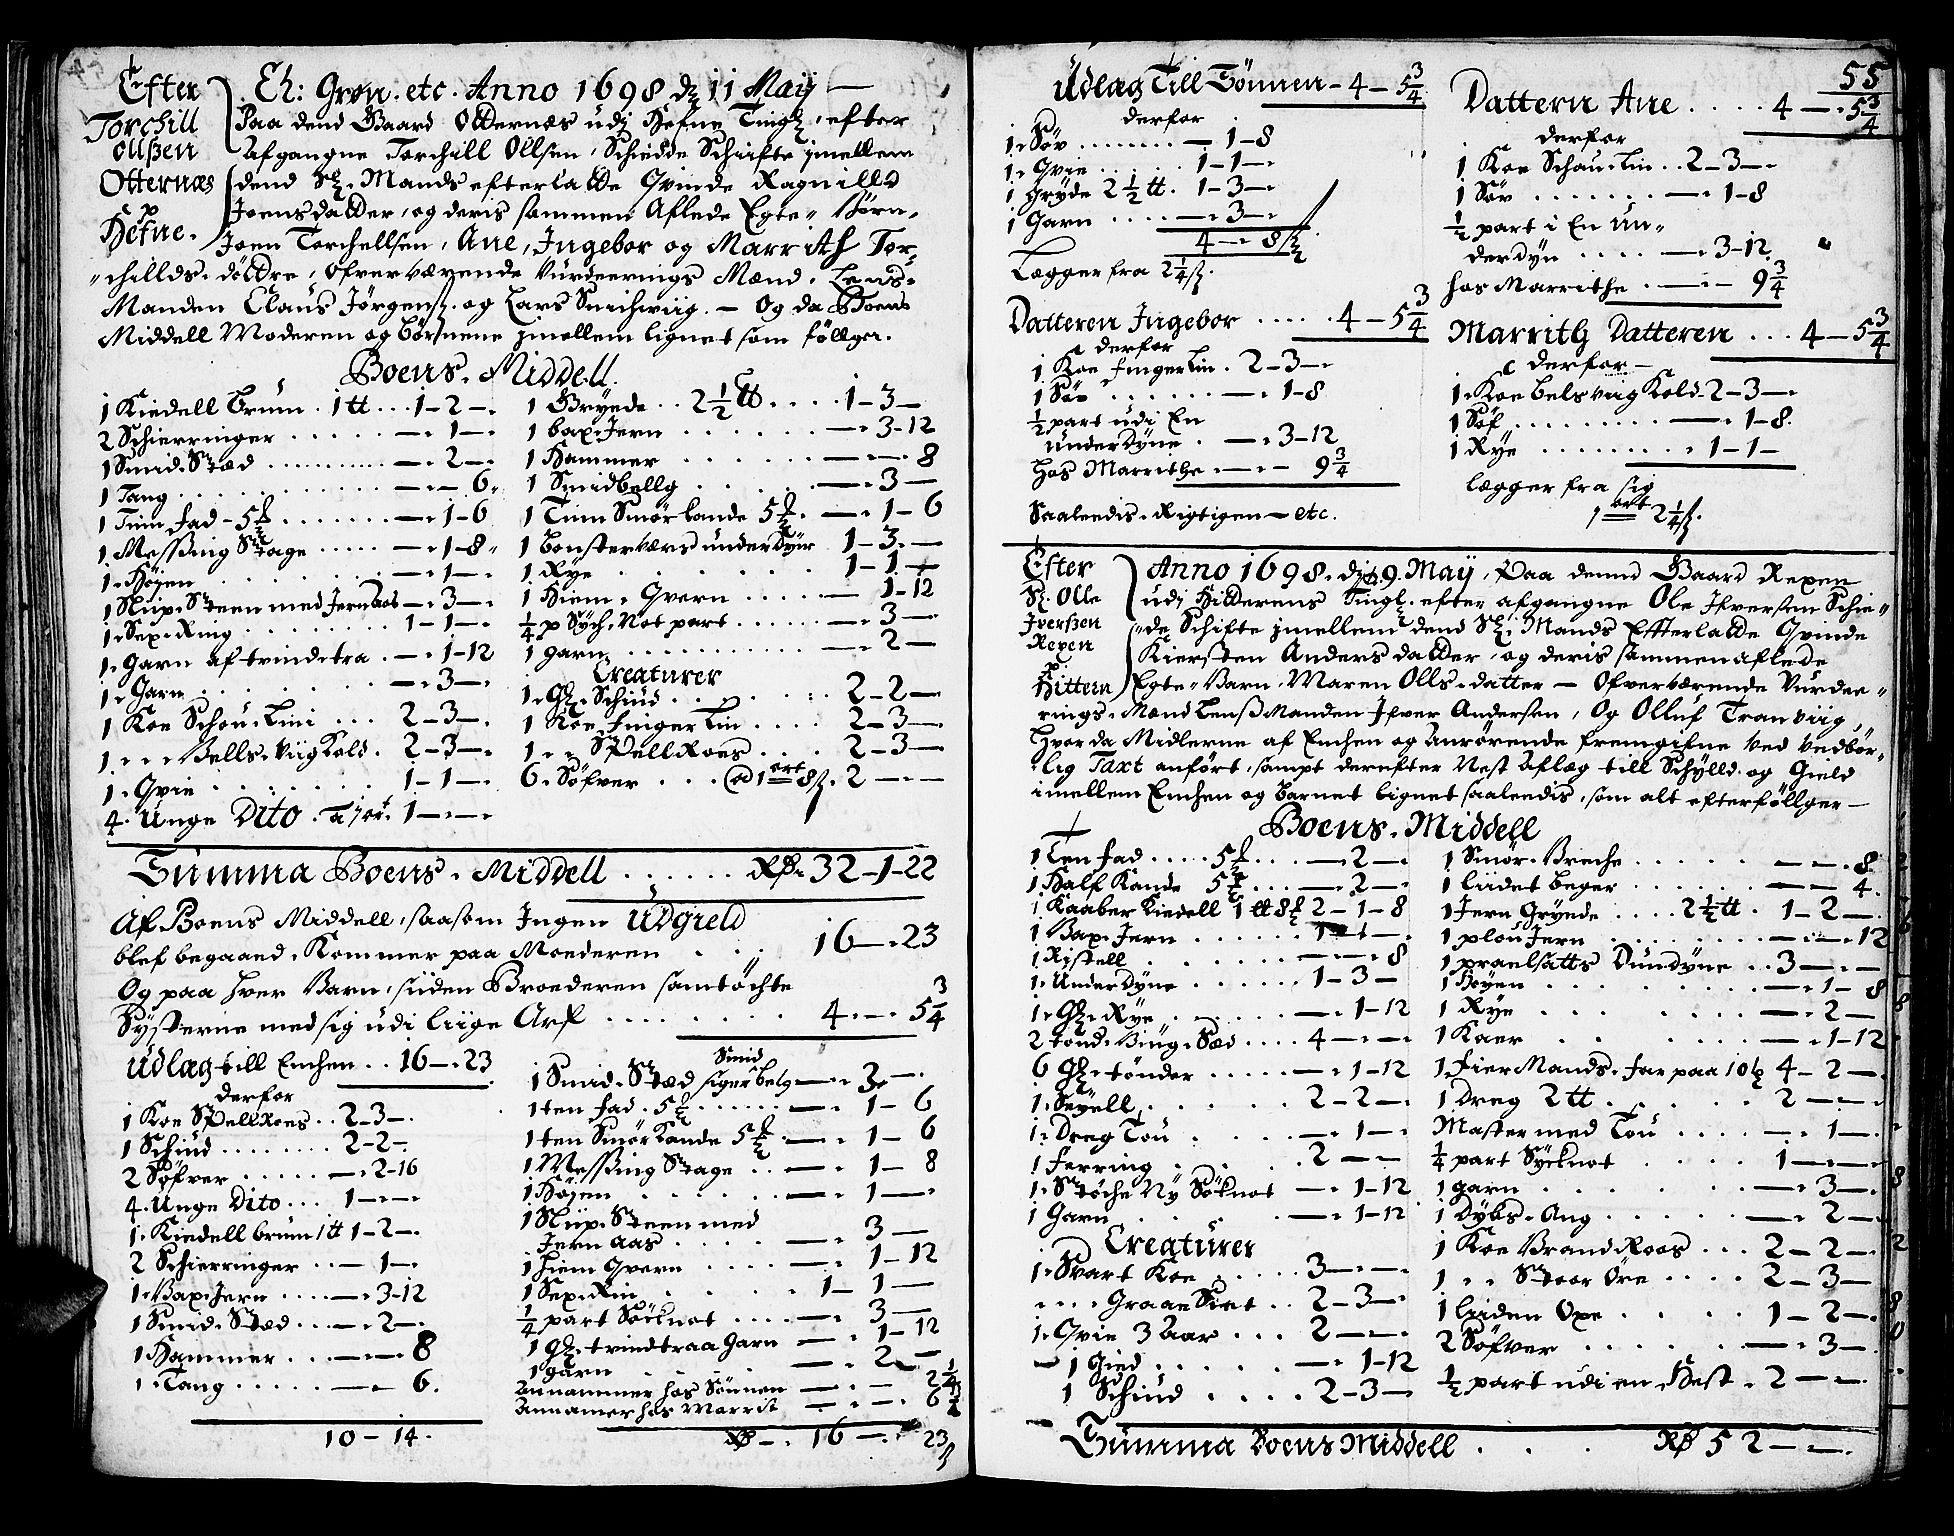 Efter
Torchill
Ollßen
Otternæs
p
Hefne.
Eh: Grøn. etc. Anno 1698 d. 11 Maij
Paa dend Gaard Otternæs udj Hefne Tingl. efter
afgangne Torchill Ollsen, Schiedde Schiifte jmellem
dend Sl. Mands efterlatte Qvinde Ragnilld
Joensdatter, og deris sammen Aflede Egte Børn,
Joen Torchellsen, Ane, Ingebor og Marrith Tor-
chillds døttre, ofverværende Vurdeerings Mænd, Lends-
Manden Claus Jørgens. og Lars Snichviig. — Og da Boens
Middell Moderen og Børnene jmellem lignet somföllger.
Boens. Middell.
1 Kiedell brum. 1 tt ... 1-2-.
2 Schierringer ...... -.1-.
1 Smid. Stæd .......... -.2-.
1 Tang ........ -.-6.
1 Tiin fad - 5 ....... -.1-6
1 Messing Stage ..... -.1-8.
1. Höjen ....... -.1-.
1 Sliip. Steen med Jern aas -.3-.
1. Sex. Ring ....... 1-1-.
1. Garn af tvindetra . -.1-12
1. Garn ....... -.3-.
1 Koe Schou. Lini ... 2-3-.
1 " " Bells. viig Kold. 2-3-.
1. Qvie ....... 1-1-.
4. Unge Dito . a 1 ort. 1-.-.
1 Gryede .. 2½ tt .... 1-3-
1 bax. Jern ....... -.3-12
1 Hammer ....... -.-.8
1 Smidbellg ...... -.3-
1 Tiin Smør kande 5 . -.1-6
1 bonsterværs underdyne 1-3.-
1 Rye ....... 1-1-
1 Hiem. Qvern ..... -.1-12
¼ p Sych. Not part ...... -.3-
1 garn .......... -.2-
Creaturer
1. Gl. Schiud ....... 2-2-
1 Koe Finger Lin .... 2-3-.
1 " " Spell Roes .... 2-3-
6. Søfver ... @ 1 ort 8 s. 2-.-
Summa Boens. Middell ...... Rd. 32-1-22
Af Boens Middell, saasom Ingen Udgield
blef begaard, Kommer paa Moederen ... 16-.23
Og paa hver Barn, siiden Broederen samtöchte
Systerne med sig udi liige Arf ........ 4.-.5¾
Udlag till Enchen .. 16-.23
derfor
1 Koe Spell Roes .. 2-3-.
1 Schiud ........ 2-2-
2 Søfver ...... -.2-16
4. Unge Dito ... 1-.-.
1. Kiedell brum 1 tt 1-2-.
2 Schierringer .. -1-.
1. Bax. Jern .... -.3-12
1 Smid. Stæd ... -.2-.
1 Hammer ... -.-.8
1. Tang ..... -.-6.
10-14.
Smid
1 Smid. Stæd belg -.3.-
1 ten fad . 5 ...... -.1-6
1 ten Smør Kande 5 . -.1-6
1 Messing Stage .. -.1-8
1 Höjen ...... -.1-.
1 Sliip. Steen med
Jern aas ..... -.3-
1 hiem Qvern .... -.1-12
1 Sex. Rin ...... 1-1-
¼ part Söcknot .... -.3-
1 Gl. tvindtraa Garn -.1-12
1 garn ....... -.2-
Annammer hos Sönnen -.-2¼
Annamer hos Marrit -.-.6¾
Rd -. 16-.23 s
55
Udlag Till Sönnen - 4-5¾
derfor
1. Söv ........ -1-8
1. Qvie ..... 1-1-.
1 gryde 2½ tt . 1-3-.
1 Garn .... -.3-.
4-.8 s
Lægger fra 2¼ s.
Datteren Ingebor ..... 4-5¾
derfor
1 Koe Finger Lin. 2-3-.
1 Söv ...... -.1-8
½ part udi En
underdyne . -.3-12
hos Marrithe .-.- 9¾
Saaleedis. Rigtigen - etc.
Dattern Ane ..... 4-.5¾
derfor
1 Koe Schau. Lin .. 2-3-.
1 Söv ....... -.1-8
½ part i En un-
derdyn .... -.3-12.
hos Marrithe .-.- 9¾
Marrith Datteren ... 4-5¾
derfor -
1. Koe belsviig Kold. 2-3-.
1 Söf ......... -.1-8.
1 Rye ........ 1-1-
lægger fra sig
1 ort 2¼ s.
Efter
Sl. Olle
Iverßen
Rexen
p
Hittern
Anno 1698. d. 19. Maij, Paa dennd Gaard Rexen
udj Hitterens Tingl. efter afgangne Ole Ifversen Schie-
de Schifte jmellem dend Sl. Mands Effterlatte Qvinde
Kiersten Anders datter, og deris sammen aflede
Egte Barn, Maren Olls datter — Ofverværende Vurdee-
rings. Mænd Lenß Manden Ifver Andersen, Og Olluf Tranviig,
hvor da Midlerne af Enchen og Anrörende fremgifne ved vedbör-
lig Taxt anfört, sampt derefter Nest Aflæg till Schylld. og Gield
imellem Enchen og barnet lignet saaleedis, som alt efterföllger—
Boens. Middell
1 Ten fad ..... 5 ... -.2-.
1 Half Kande 5 ... -.2-.
1 Kaaber Kiedell 1 tt 8 2-1-8
1 Bax. Jern ......
1 Ristell ..... -.-.8
1. Underdyne ...... 1-3-
1. Gl. Rye ...... -.1-12
2 tond. Biug. Sæd .... 4-.-.
6 Gl. tönder ..... -.1-12
1. Seyell ....... 2-2-.
1. Dreg Tou ...... -.1-.
1 Ferring ...... 2-.-
1. Stöche Ny Söcknot -.1-12
1 Garn ....... -.1-12
Creaturer
1. Svart Koe ..... 3-.-.
" " " Graae Siet .. 2-3-.
1. Qvie 3 Aar ... 2-.-.
1 Gied ...... -.1-12
1 Schiud .... 2-3-.
1 Smör. Breche ..... -.-.8.
1 liidet beger ...... -.-4.
1 Jern Gryede .... 2½ tt . 1-2-.
1 plou Jern ....... -.-.12
1 Dundyne .. 3-.-
1 Höyen ....... -.1-8
1 Rye ....... -.2-
1 Kaer ....... -.1-12
1 Fier Mands. far paa 10 4-2-.
1 Dreg 2 tt ...... 2-.-.
Master med Tou .... -.1-.
¼ part Sycknot ..... 1-.-.
1 garn ....... -.3-.
1 Dybs. Ang ..... -.2-
1 Koe Brand Roos ... 2-2-.
1 " " Stoor Öre .... 2-3-
1 liiden Oxe ..... 1-2-.
2 Söfver ..... -.3-.
½ part udi en Hest . 2-.-.
Summa Boens Middell ... Rd 52-.-.